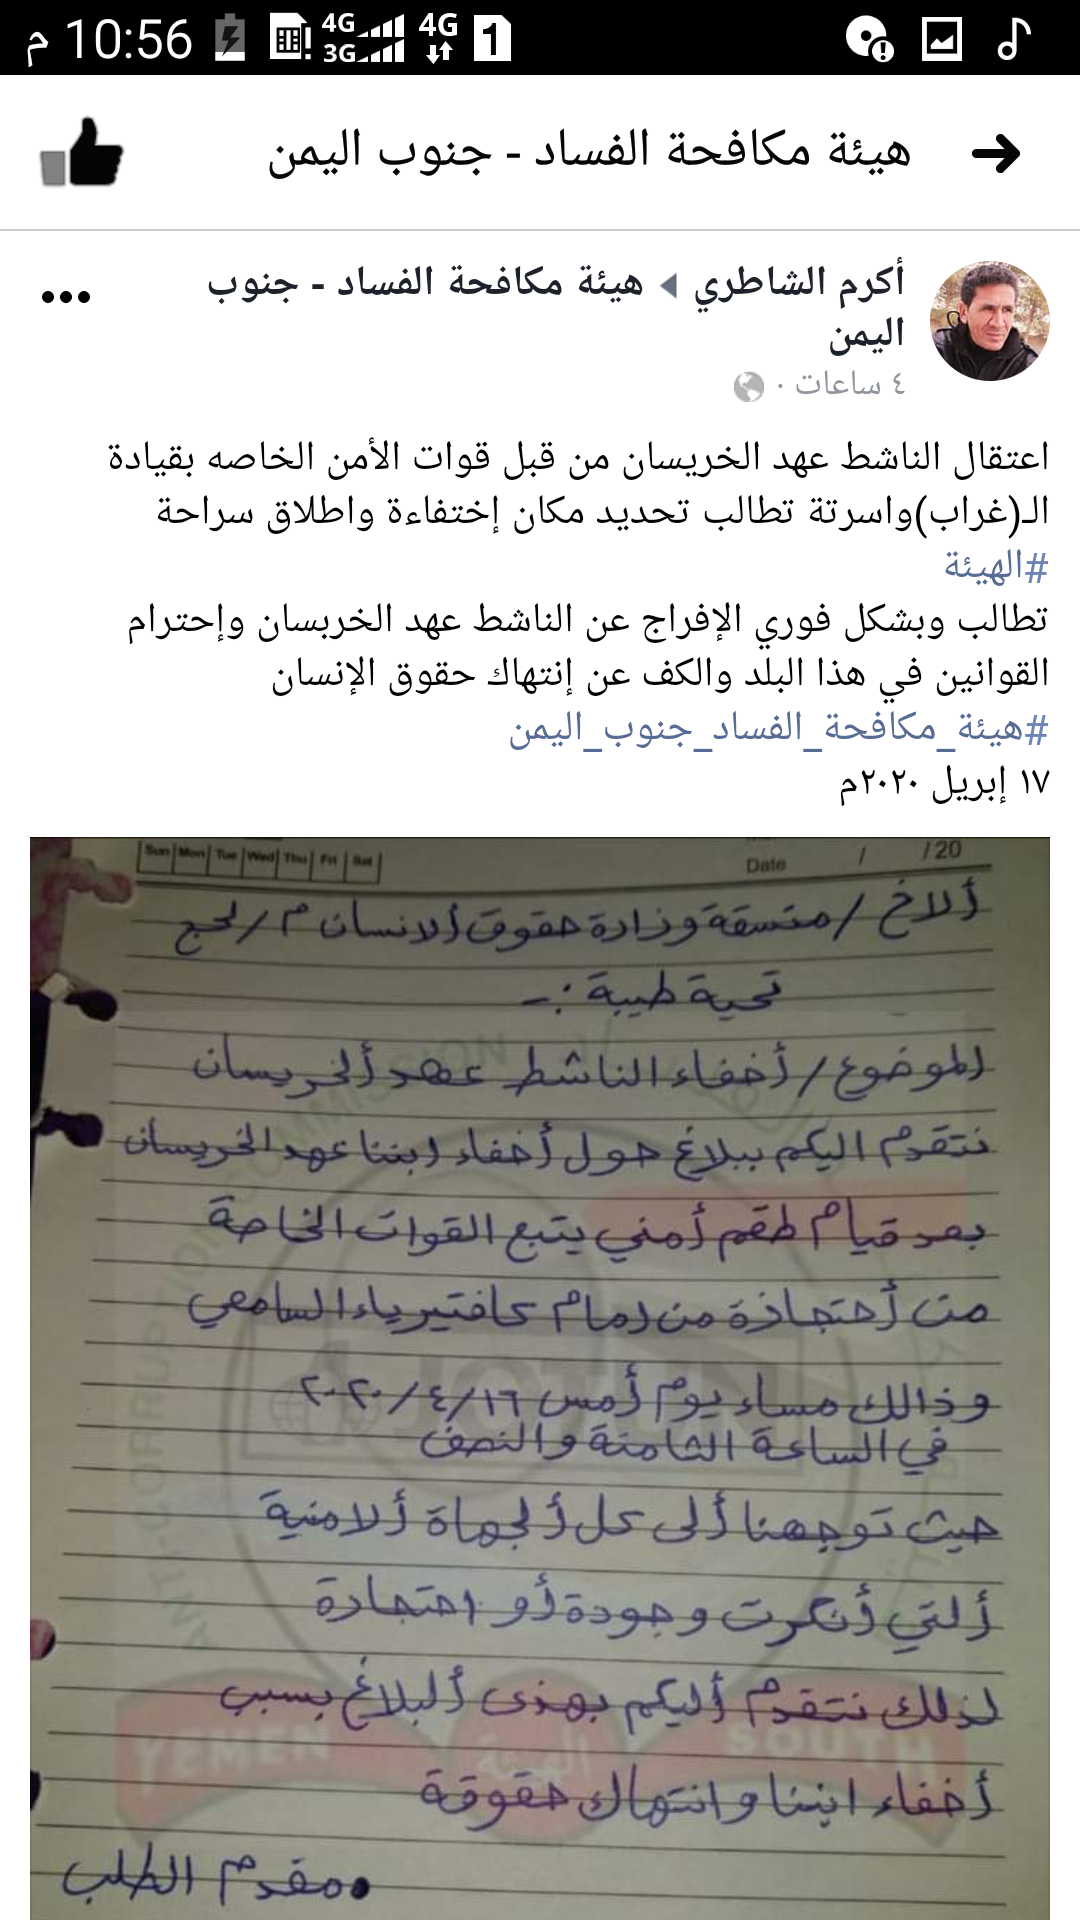 10:56 م
4G
3G
4G
1
هيئة مكافحة الفساد - جنوب اليمن
أكرم الشاطري ◂ هيئة مكافحة الفساد - جنوب
اليمن
٤ ساعات ·
اعتقال الناشط عهد الخريسان من قبل قوات الأمن الخاصه بقيادة
الـ(غراب)واسرتة تطالب تحديد مكان إختفاءة واطلاق سراحة
#الهيئة
تطالب وبشكل فوري الإفراج عن الناشط عهد الخربسان وإحترام
القوانين في هذا البلد والكف عن إنتهاك حقوق الإنسان
#هيئة_مكافحة_الفساد_جنوب_اليمن
١٧ إبريل ٢٠٢٠م
Sun Mon Tue Wed Thu Fri Sat
Date / /20
ألاخ / منسقة وزارة حقوق ألانسان م/لحج
تحية طيبة :-
الموضوع / أخفاء الناشط عهد ألخريسان
نتقدم اليكم ببلاغ حول أخفاء ابننا عهد الخريسان
بعد قيام طقم أمني يتبع القوات الخاصة
من أحتجازة من امام كافتيرياء السامعي
وذالك مساء يوم أمس ١٦/٤/٢٠٢٠
في الساعة الثامنة والنصف
حيث توجهنا ألى كل ألجهاة ألامنية
ألتي أنكرت وجودة أو احتجازة
لذلك نتقدم أليكم بهذى ألبلاغ بسبب
أخفاء ابننا وانتهاك حقوقة
مقدم الطلب
ANTI-CORRUPTION COMMISSION
YEMEN
الهيئة
SOUTH